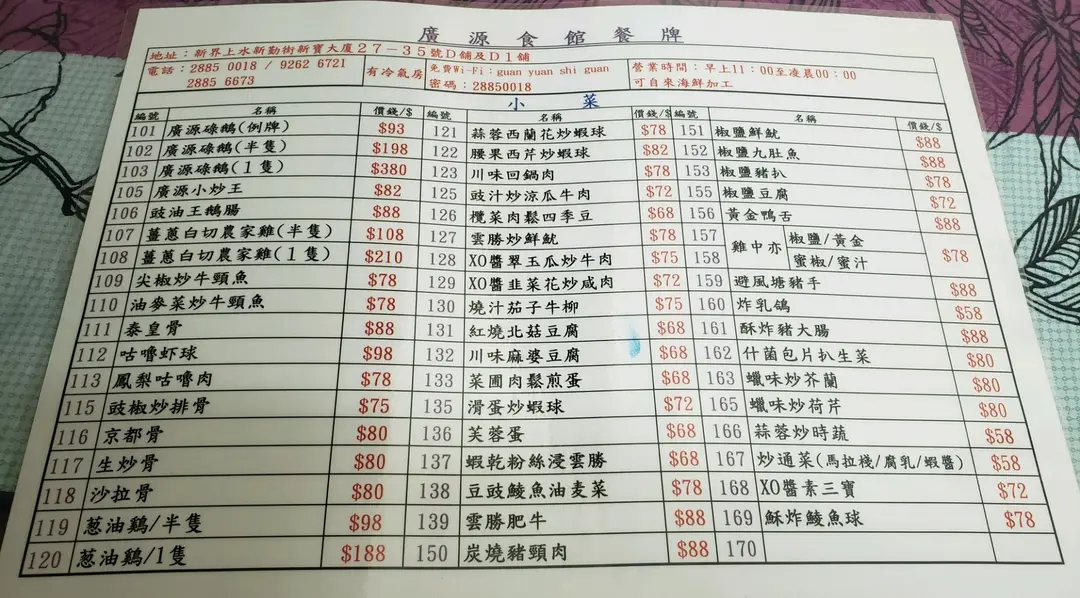 廣源食館餐牌
地址：新界上水新勤街新寶大廈27－35號D舖及D1舖
電話：2885 0018 / 9262 6721
2885 6673
有冷氣房
免費Wi-Fi：guan yuan shi guan
密碼：28850018
營業時間：早上11：00至凌晨00：00
可自來海鮮加工
小菜
編號 名稱 價錢/$ 編號 名稱 價錢/$ 編號 名稱 價錢/$
101 廣源碌鵝(例牌) $93 121 蒜蓉西蘭花炒蝦球 $78 151 椒鹽鮮魷 $88
102 廣源碌鵝(半隻) $198 122 腰果西芹炒蝦球 $82 152 椒鹽九肚魚 $88
103 廣源碌鵝(1隻) $380 123 川味回鍋肉 $78 153 椒鹽豬扒 $78
105 廣源小炒王 $82 125 豉汁炒涼瓜牛肉 $72 155 椒鹽豆腐 $72
106 豉油王鵝腸 $88 126 欖菜肉鬆四季豆 $68 156 黃金鴨舌 $88
107 薑蔥白切農家雞(半隻) $108 127 雲勝炒鮮魷 $78 157 雞中亦 椒鹽/黃金 $78
108 薑蔥白切農家雞(1隻) $210 128 XO醬翠玉瓜炒牛肉 $75 158 蜜椒/蜜汁
109 尖椒炒牛頸魚 $78 129 XO醬韭菜花炒咸肉 $72 159 避風塘豬手 $88
110 油麥菜炒牛頸魚 $78 130 燒汁茄子牛柳 $75 160 炸乳鴿 $58
111 泰皇骨 $88 131 紅燒北菇豆腐 $68 161 酥炸豬大腸 $88
112 咕嚕虾球 $98 132 川味麻婆豆腐 $68 162 什菌包片扒生菜 $80
113 鳳梨咕嚕肉 $78 133 菜圃肉鬆煎蛋 $68 163 蠟味炒芥蘭 $80
115 豉椒炒排骨 $75 135 滑蛋炒蝦球 $72 165 蠟味炒荷芹 $80
116 京都骨 $80 136 芙蓉蛋 $68 166 蒜蓉炒時蔬 $58
117 生炒骨 $80 137 蝦乾粉絲浸雲勝 $68 167 炒通菜(馬拉棧/腐乳/蝦醬) $58
118 沙拉骨 $80 138 豆豉鯪魚油麦菜 $78 168 XO醬素三寶 $72
119 葱油鷄/半隻 $98 139 雲勝肥牛 $88 169 酥炸鯪魚球 $78
120 葱油鷄/1隻 $188 150 炭燒豬頸肉 $88 170